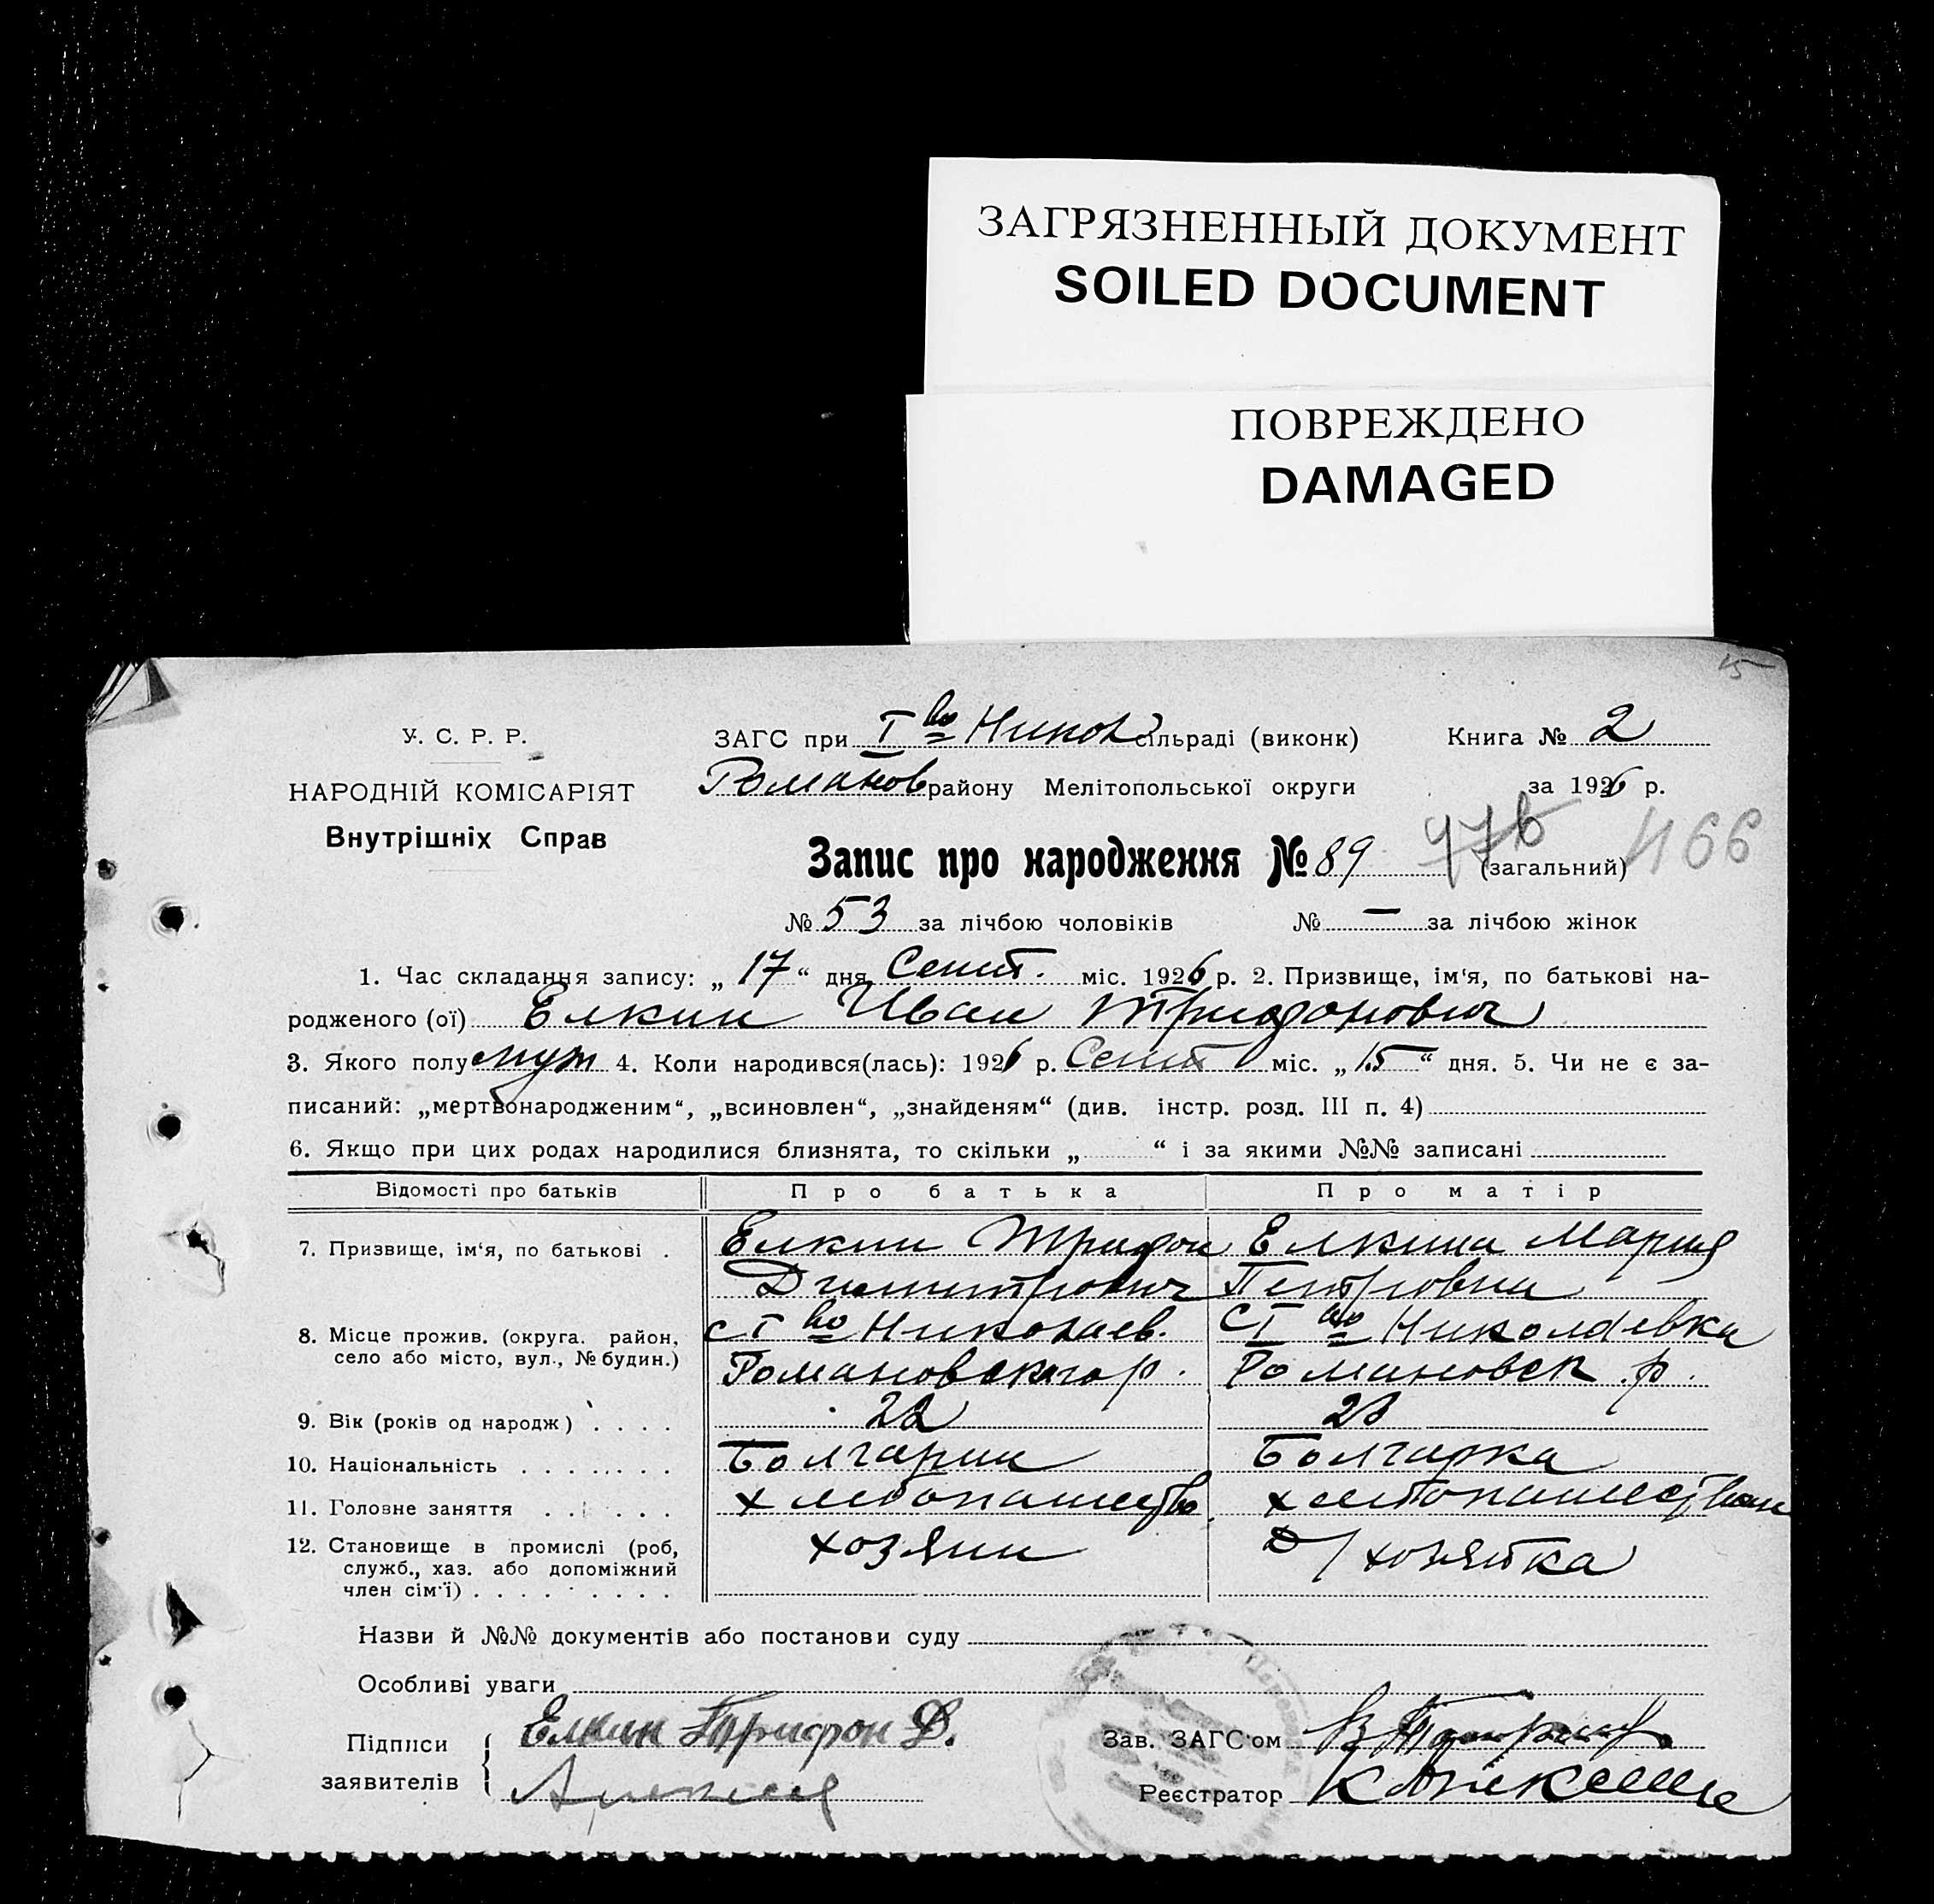 ЗАГРЯЗНЕННЫЙ ДОКУМЕНТ
SOILED DOCUMENT
ПОВРЕЖДЕНО
DAMAGED
15
У. С. Р. Р.
НАРОДНІЙ КОМІСАРІЯТ
Внутрішніх Справ
ЗАГС при I во Никол сільраді (виконк) Книга № 2
Романов району Мелітопольської округи за 1926 р.
Запис про народження № 89 (загальний) 466
№ 53 за лічбою чоловіків № — за лічбою жінок
1. Час складання запису: „ 17 “ дня Сент. міс. 1926 р. 2. Призвище, ім‘я, по батькові на-
родженого (ої) Елкин Иван Трифонович
3. Якого полу муж 4. Коли народився(лась): 1926 р. Сент міс. „ 15 “ дня. 5. Чи не є за-
писаний: „мертвонародженим“, „всиновлен“, „знайденям“ (див. інстр. розд. III п. 4)
6. Якщо при цих родах народилися близнята, то скільки „ “ і за якими №№ записані
Відомості про батьків Про батька Про матір
7. Призвище, ім‘я, по батькові . Елкин Трифон Елкина Мария
Димитрович Петровна
8. Місце прожив. (округа. район, с I во Николаев. с I во Николаевка
село або місто, вул., № будин.) Романовского р. Романовск. р.
9. Вік (років од народж) . . . . 22 23
10. Національність . . . . . . . Болгарин Болгарка
11. Головне заняття . . . . . . хлебопашество
12. Становище в промислі (роб, хозяин д/хозяйка
служб., хаз. або допоміжний
член сім‘ї) . . . . . . . .
Назви й №№ документів або постанови суду
Особливі уваги
Підписи Елкин Трифон Д. Зав. ЗАГС‘ом
заявителів Реєстратор